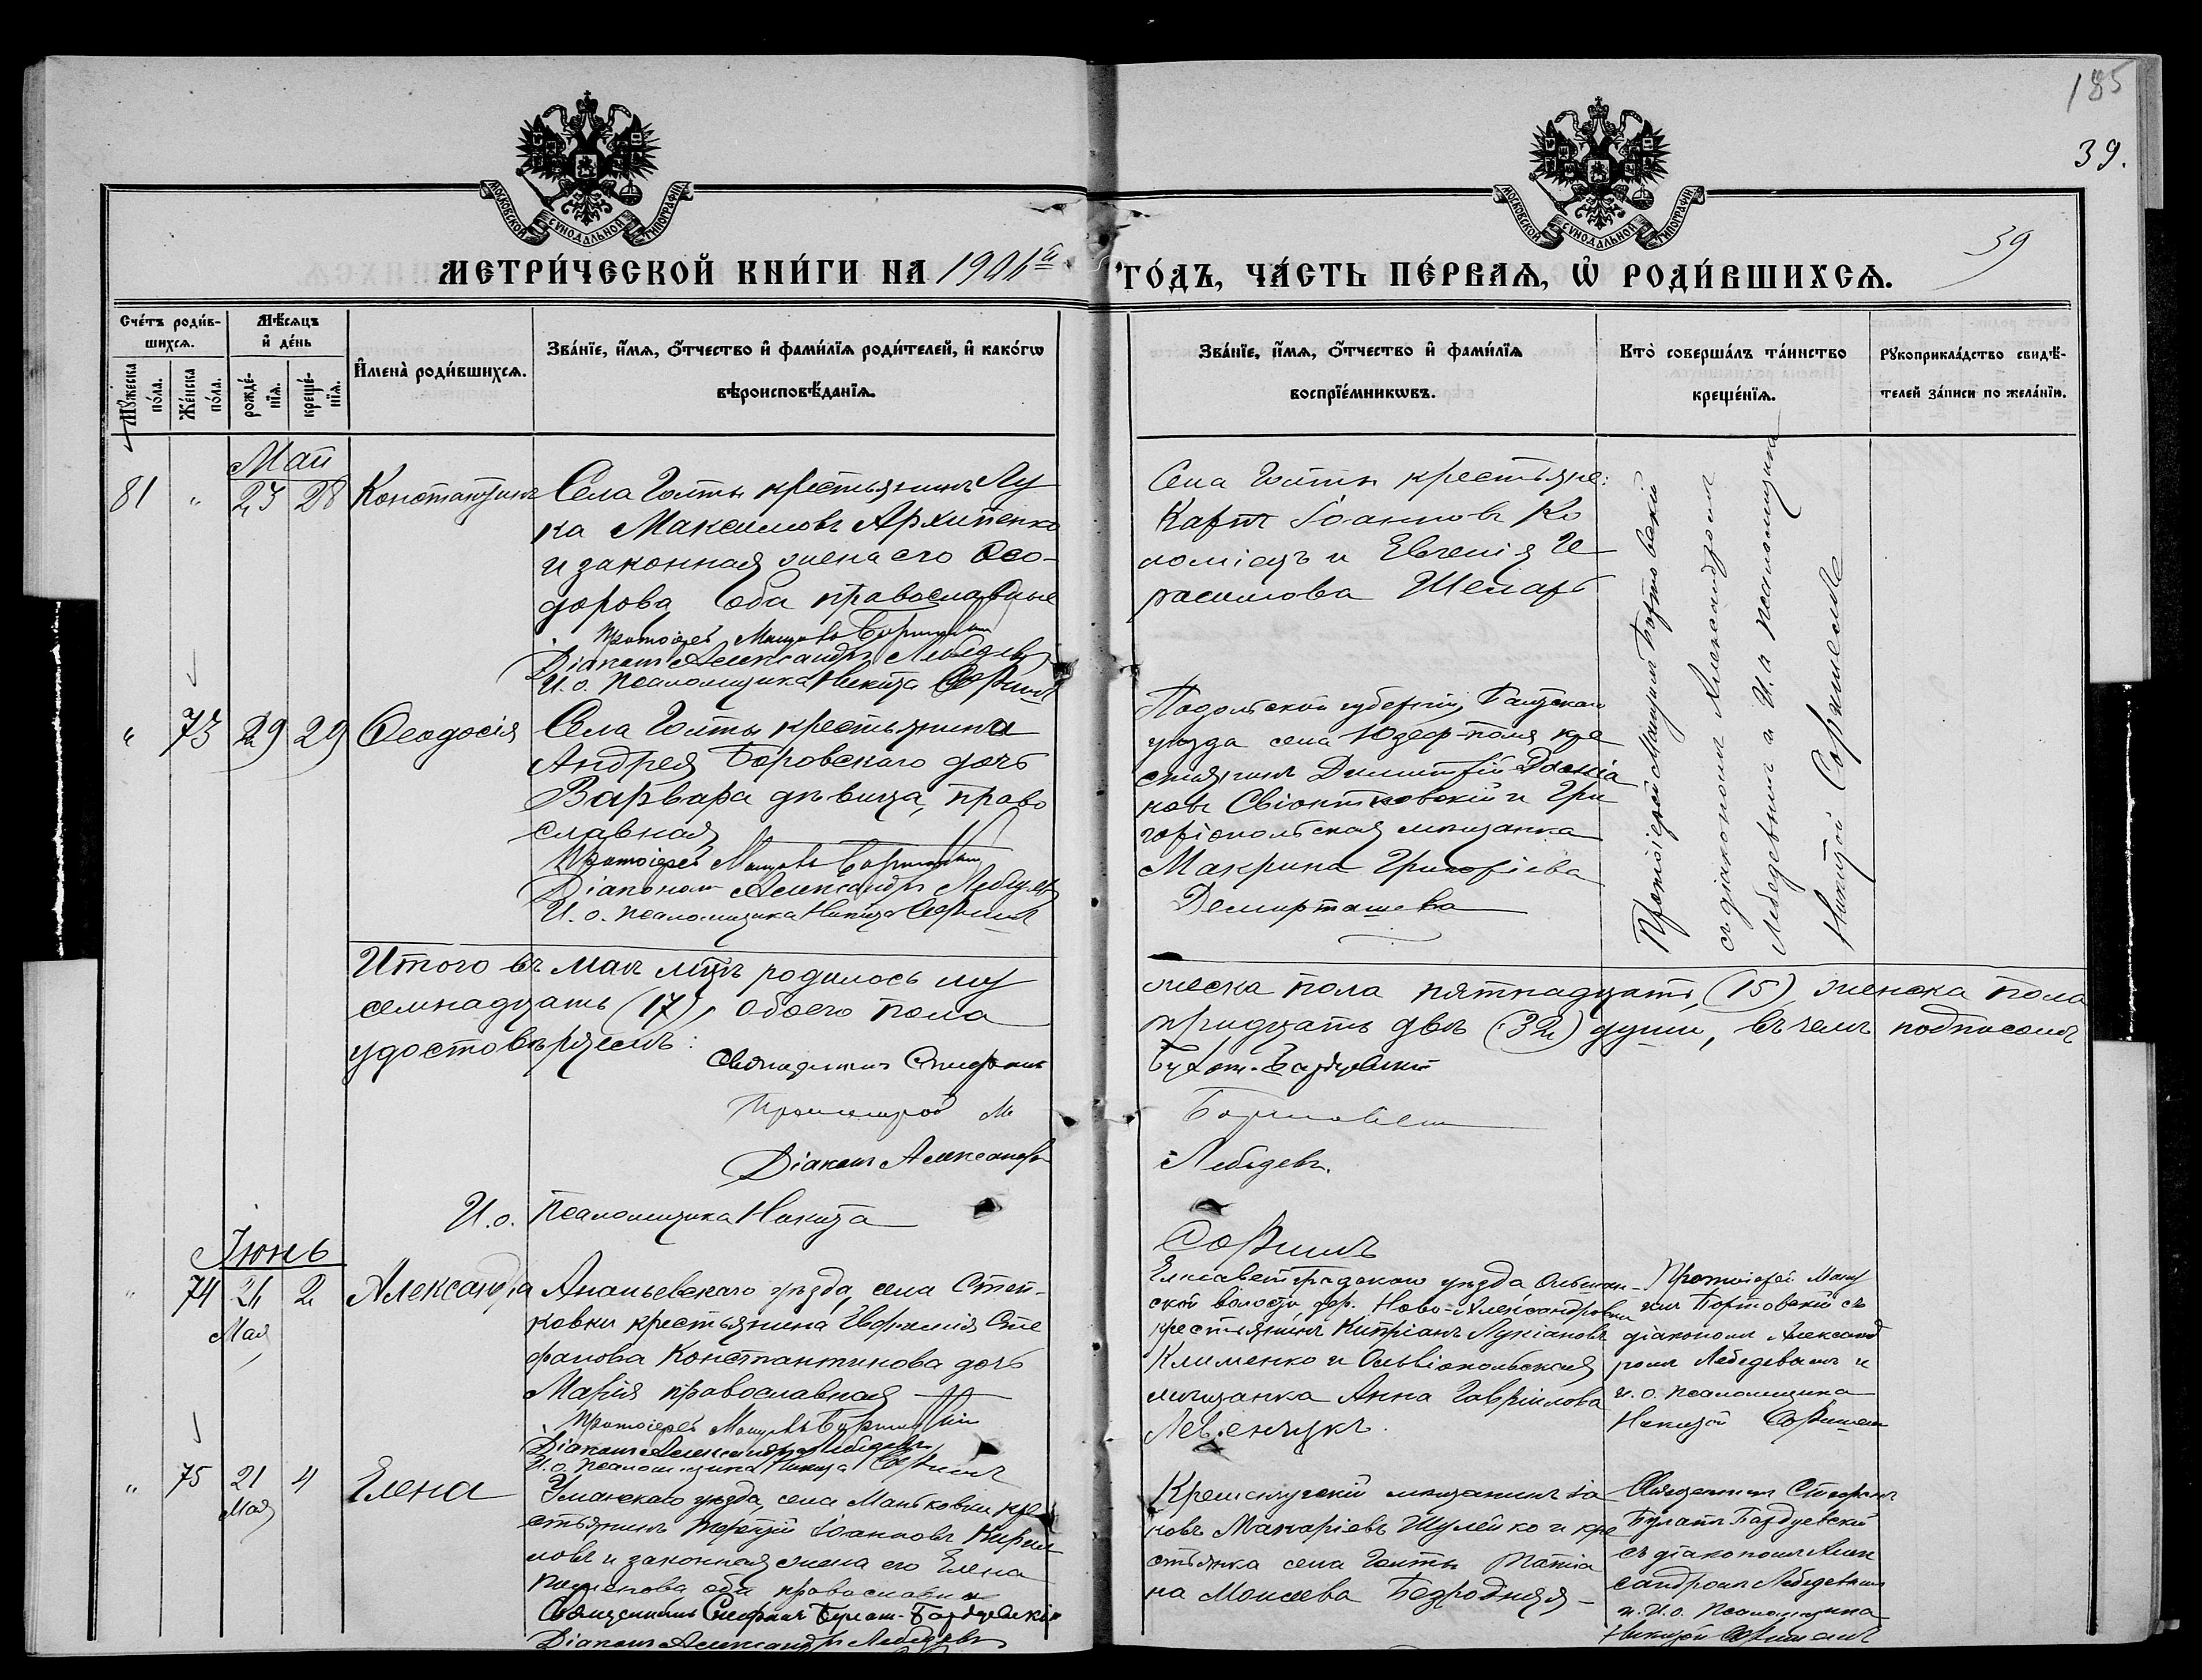 185
39.
39
МОСКОВСКОЙ СУНОДАЛЬНОЙ ТИПОГРАФІИ
МОСКОВСКОЙ СУНОДАЛЬНОЙ ТИПОГРАФІИ
МЕТРИ́ЧЕСКОЙ КНИ́ГИ НА 1901й
ГО́ДЪ, ЧА́СТЬ ПЕ́РВАѦ, Ѡ҆ РОДИ́ВШИХСѦ.
Сче́тъ роди́в-
шихсѧ.
Мѣ́сѧцъ
и҆ де́нь
Мꙋ́жеска по́ла.
Же́нска по́ла.
рожде́-нїѧ.
креще́-нїѧ.
И҆мена̀ роди́вшихсѧ.
Зва́нїе, и҆́мѧ, ѻ҆́тчество и҆ фами́лїѧ роди́телей, и҆ како́гѡ
вѣроисповѣ́данїѧ.
Зва́нїе, и҆́мѧ, ѻ҆́тчество и҆ фами́лїѧ
воспрїе́мникѡвъ.
Кто̀ соверша́лъ та́инство
креще́нїѧ.
Рꙋкоприкла́дство свидѣ́-
телей за́писи по жела́нїю.
Май
81 " 23 28 Константинъ
Села Голты крестьянинъ Лу
ка Максимовъ Архипенко
и законная жена его Ѳео-
дорова оба православные
Протоіерей
Діаконъ Александръ Лебедевъ
И. о. псаломщика Никита
Села Голты крестьяне:
Карпъ Іоанновъ Ко
ломіецъ и Евгенія Ге
расимова
Протоіерей
съ діакономъ Александромъ
Лебедевымъ и И. о псаломщика
Никитой
" 73 29 29 Ѳеодосія
Села Голты крестьянина
Андрея Боровскаго дочь
Варвара дѣвица, право
славная
Протоіерей
Діаконъ Александръ Лебедевъ
И. о. псаломщика Никита
Подольской губерніи, Балтскаго
уѣзда села Юзеф-поля кре
стьянинъ Димитрій
и Гри
горіопольская мѣщанка
Макрина Григоріева
Демирташева
Итого въ маѣ мцѣ родилось му
жеска пола пятнадцать (15), женска пола
семнадцать (17), обоего пола
тридцать двѣ (32) души, въ чемъ подписомъ
удостовѣряемъ:
Священникъ Стефанъ
Булат-Бардуевскій
Протоіерей М
Діаконъ Александръ
Лебедевъ.
И. о. псаломщика Никита
Іюнь
" 74 26 Мая 2 Александра
Ананьевскаго уѣзда, села Степ-
ковки крестьянина Евфимія Сте
фанова Константинова дочь
Марія православная
Протоіерей
Діаконъ Александръ Лебедевъ
И. о. псаломщика Никита
Елисаветградскаго уѣзда Ольшан-
ской волости дер. Ново-Александровки
крестьянинъ Кипріанъ Лукіановъ
Клименко и Ольвіопольская
мѣщанка Анна Гавріилова
Левенчукъ.
Протоіерей
съ
діакономъ Александ
ромъ Лебедевымъ и
и. о. псаломщика
Никитой
" 75 21 Мая 4 Елена
Уманскаго уѣзда, села Маньковки кре
стьянинъ Іоанновъ Кирил
ловъ и законная жена его Елена
оба православные
Священникъ Стефанъ Булат-Бардуевскій
Діаконъ Александръ Лебедевъ
Кременчугскій мѣщанинъ Іа
ковъ Макаріевъ Шулейко и кре
стьянка села Голты Татіа
на Моисеева Безродняя
Священникъ Стефанъ
Булатъ Бардуевскій
съ діакономъ Алек
сандромъ Лебедевымъ
и И.о. псаломщика
Никитой